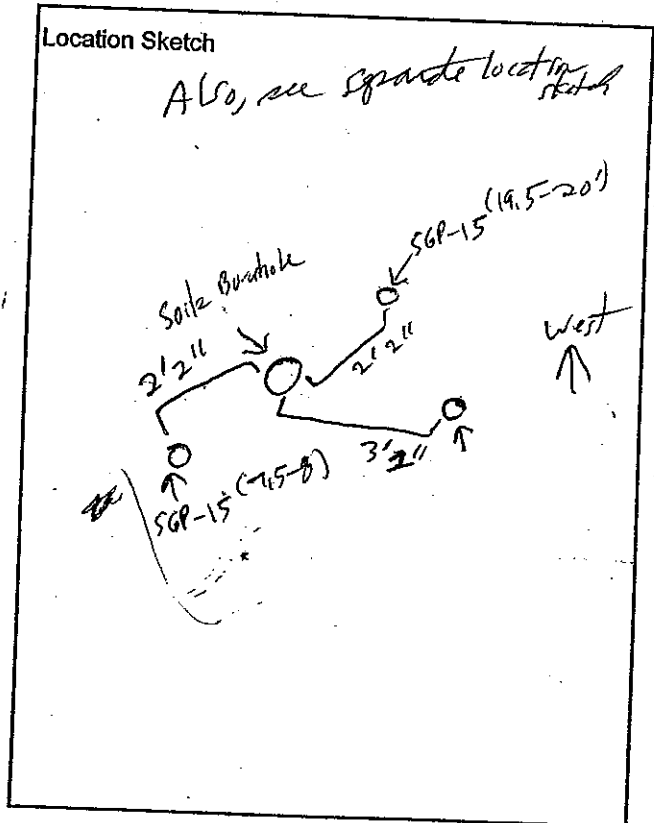 Location Sketch
Also, see separate location sketch
SGP-15 (19.5-20')
Soil Borehole
West
2'2"
2'2"
3'2"
SGP-15 (7.5-8)